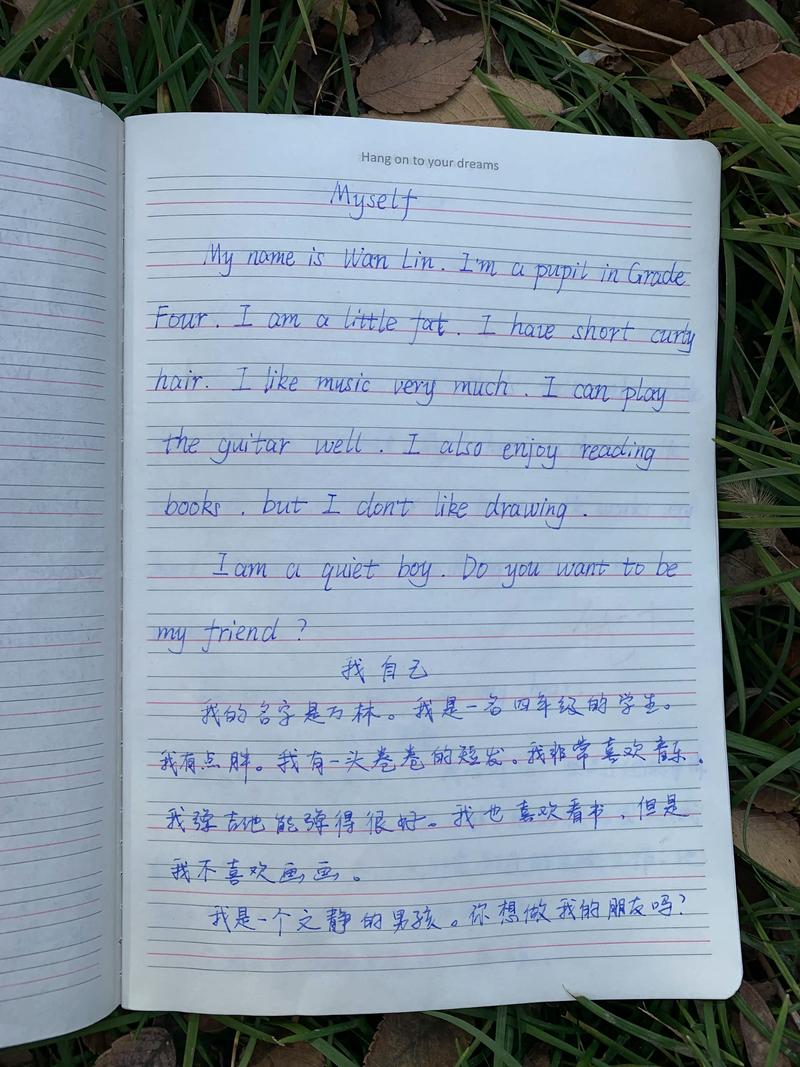 Hang on to your dreams
Myself
My name is Wan Lin. I'm a pupil in Grade
Four. I am a little fat. I have short curly
hair. I like music very much. I can play
the guitar well. I also enjoy reading
books, but I don't like drawing.
I am a quiet boy. Do you want to be
my friend?
我自己
我的名字是万林。我是一名四年级的学生。
我有点胖。我有一头卷卷的短发。我非常喜欢音乐。
我弹吉他能弹得很好。我也喜欢看书,但是
我不喜欢画画。
我是一个文静的男孩。你想做我的朋友吗?